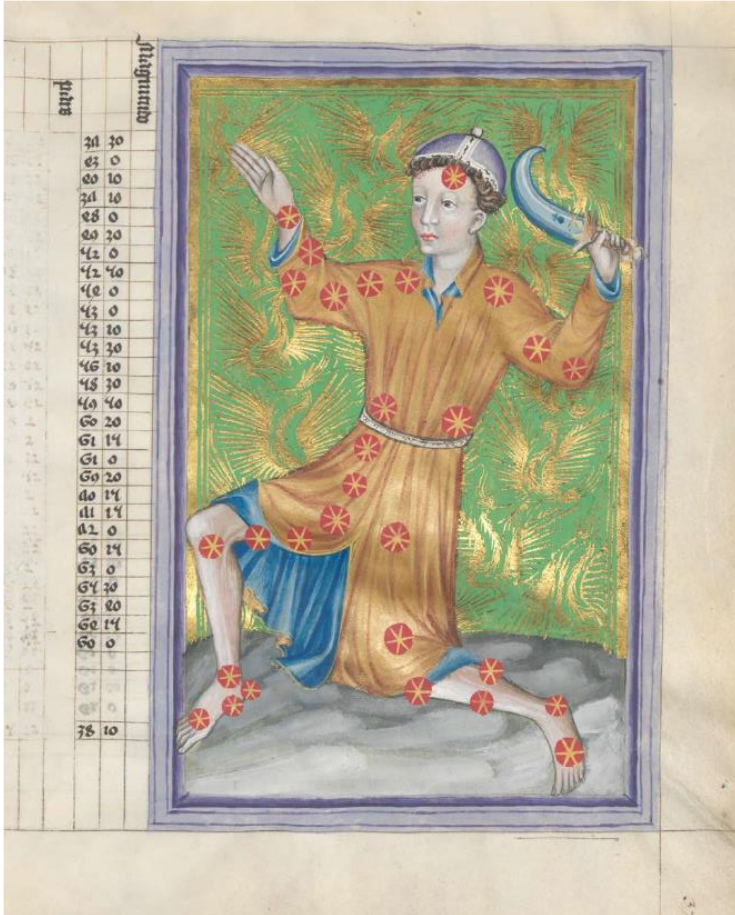 Magnitudo
37 30
43 0
40 10
37 10
48 0
49 30
52 0
52 50
54 0
53 0
53 10
53 30
56 10
58 30
59 50
60 20
61 15
61 0
69 20
70 15
71 15
72 0
60 15
63 0
65 30
63 40
64 15
60 0
38 10